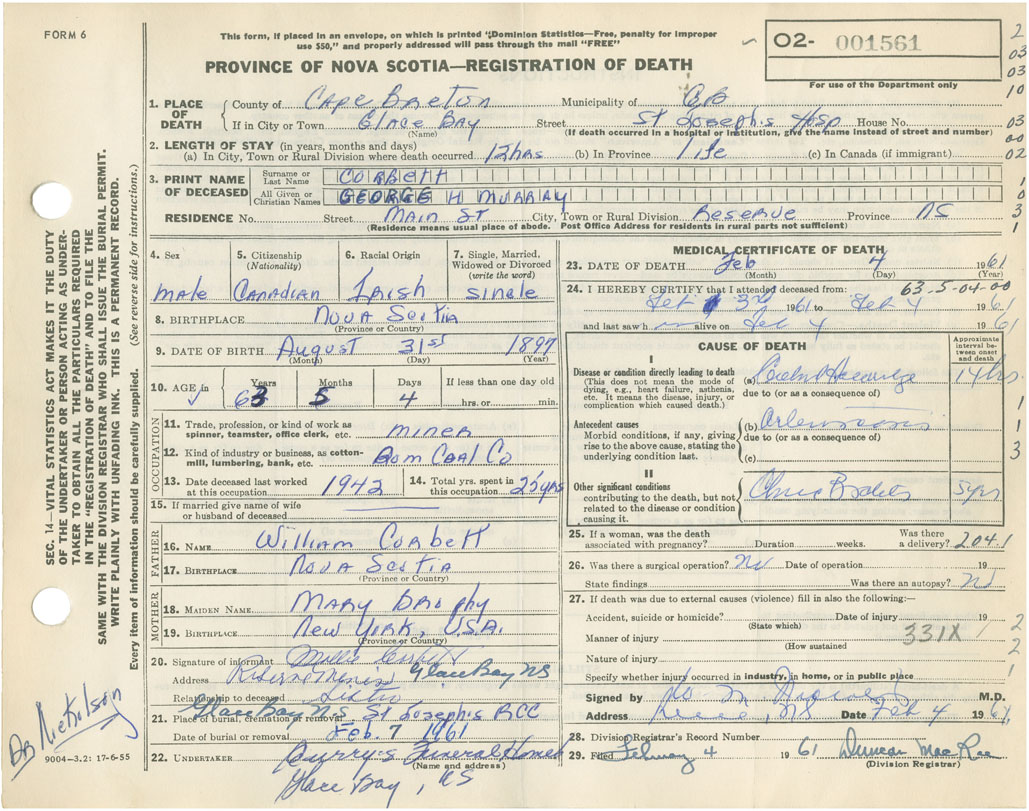 FORM 6
This form, if placed in an envelope, on which is printed "Dominion Statistics—Free, penalty for improper
use $50," and properly addressed will pass through the mail "FREE"
O2- 001561
For use of the Department only
PROVINCE OF NOVA SCOTIA—REGISTRATION OF DEATH
1. PLACE OF DEATH County of Cape Breton Municipality of C.B
If in City or Town Glace Bay Street St Joseph's Hosp House No.
(Name) (If death occurred in a hospital or institution, give the name instead of street and number)
2. LENGTH OF STAY (in years, months and days)
(a) In City, Town or Rural Division where death occurred 12 hrs (b) In Province life (c) In Canada (if immigrant)
3. PRINT NAME OF DECEASED Surname or Last Name CORBETT
All Given or Christian Names GEORGE H MURRAY
RESIDENCE No. Street Main St City, Town or Rural Division Reserve Province NS
(Residence means usual place of abode. Post Office Address for residents in rural parts not sufficient)
4. Sex male
5. Citizenship (Nationality) Canadian
6. Racial Origin Irish
7. Single, Married, Widowed or Divorced (write the word) single
8. BIRTHPLACE Nova Scotia
(Province or Country)
9. DATE OF BIRTH August 31st 1897
(Month) (Day) (Year)
10. AGE in Years Months Days If less than one day old
63 5 4 hrs. or min.
OCCUPATION
11. Trade, profession, or kind of work as spinner, teamster, office clerk, etc. miner
12. Kind of industry or business, as cotton-mill, lumbering, bank, etc. Dom Coal Co
13. Date deceased last worked at this occupation 1942
14. Total yrs. spent in this occupation 25 yrs
15. If married give name of wife or husband of deceased
FATHER
16. NAME William Corbett
17. BIRTHPLACE Nova Scotia
(Province or Country)
MOTHER
18. MAIDEN NAME Mary Brophy
19. BIRTHPLACE New York, U.S.A.
(Province or Country)
20. Signature of informant
Address Reserve Mines Glace Bay NS
Relationship to deceased Sister
21. Place of burial, cremation or removal Glace Bay NS St Joseph's RCC
Date of burial or removal Feb. 7 1961
22. UNDERTAKER Curry's Funeral Home
(Name and address)
Glace Bay, NS
MEDICAL CERTIFICATE OF DEATH
23. DATE OF DEATH Feb 4 1961
(Month) (Day) (Year)
24. I HEREBY CERTIFY that I attended deceased from: 63-5-04-00
Feb 3rd 1961 to Feb 4 1961
and last saw h m alive on Feb 4 1961
CAUSE OF DEATH
Approximate interval between onset and death
I
Disease or condition directly leading to death
(This does not mean the mode of dying, e.g., heart failure, asthenia, etc. It means the disease, injury, or complication which caused death.)
(a) 14 hrs.
due to (or as a consequence of)
Antecedent causes
Morbid conditions, if any, giving rise to the above cause, stating the underlying condition last.
(b)
due to (or as a consequence of)
(c)
II
Other significant conditions
contributing to the death, but not related to the disease or condition causing it.
5 yrs
25. If a woman, was the death associated with pregnancy? Duration weeks. Was there a delivery? 204.1
26. Was there a surgical operation? No Date of operation 19
State findings Was there an autopsy? No
27. If death was due to external causes (violence) fill in also the following:—
Accident, suicide or homicide? Date of injury 19
(State which)
Manner of injury 331X
(How sustained)
Nature of injury
Specify whether injury occurred in industry, in home, or in public place
Signed by M.D.
Address NS Date Feb 4 1961
28. Division Registrar's Record Number
29. Filed February 4 1961 Duncan MacRae
(Division Registrar)
SEC. 14—VITAL STATISTICS ACT MAKES IT THE DUTY
OF THE UNDERTAKER OR PERSON ACTING AS UNDER-
TAKER TO OBTAIN ALL THE PARTICULARS REQUIRED
IN THE "REGISTRATION OF DEATH" AND TO FILE THE
SAME WITH THE DIVISION REGISTRAR WHO SHALL ISSUE THE BURIAL PERMIT.
WRITE PLAINLY WITH UNFADING INK. THIS IS A PERMANENT RECORD.
Every item of information should be carefully supplied. (See reverse side for instructions.)
Nicholson
9004—3.2: 17-6-55
2
03
03
10
03
00
02
1
0
3
1
1
1
3
2
2
1